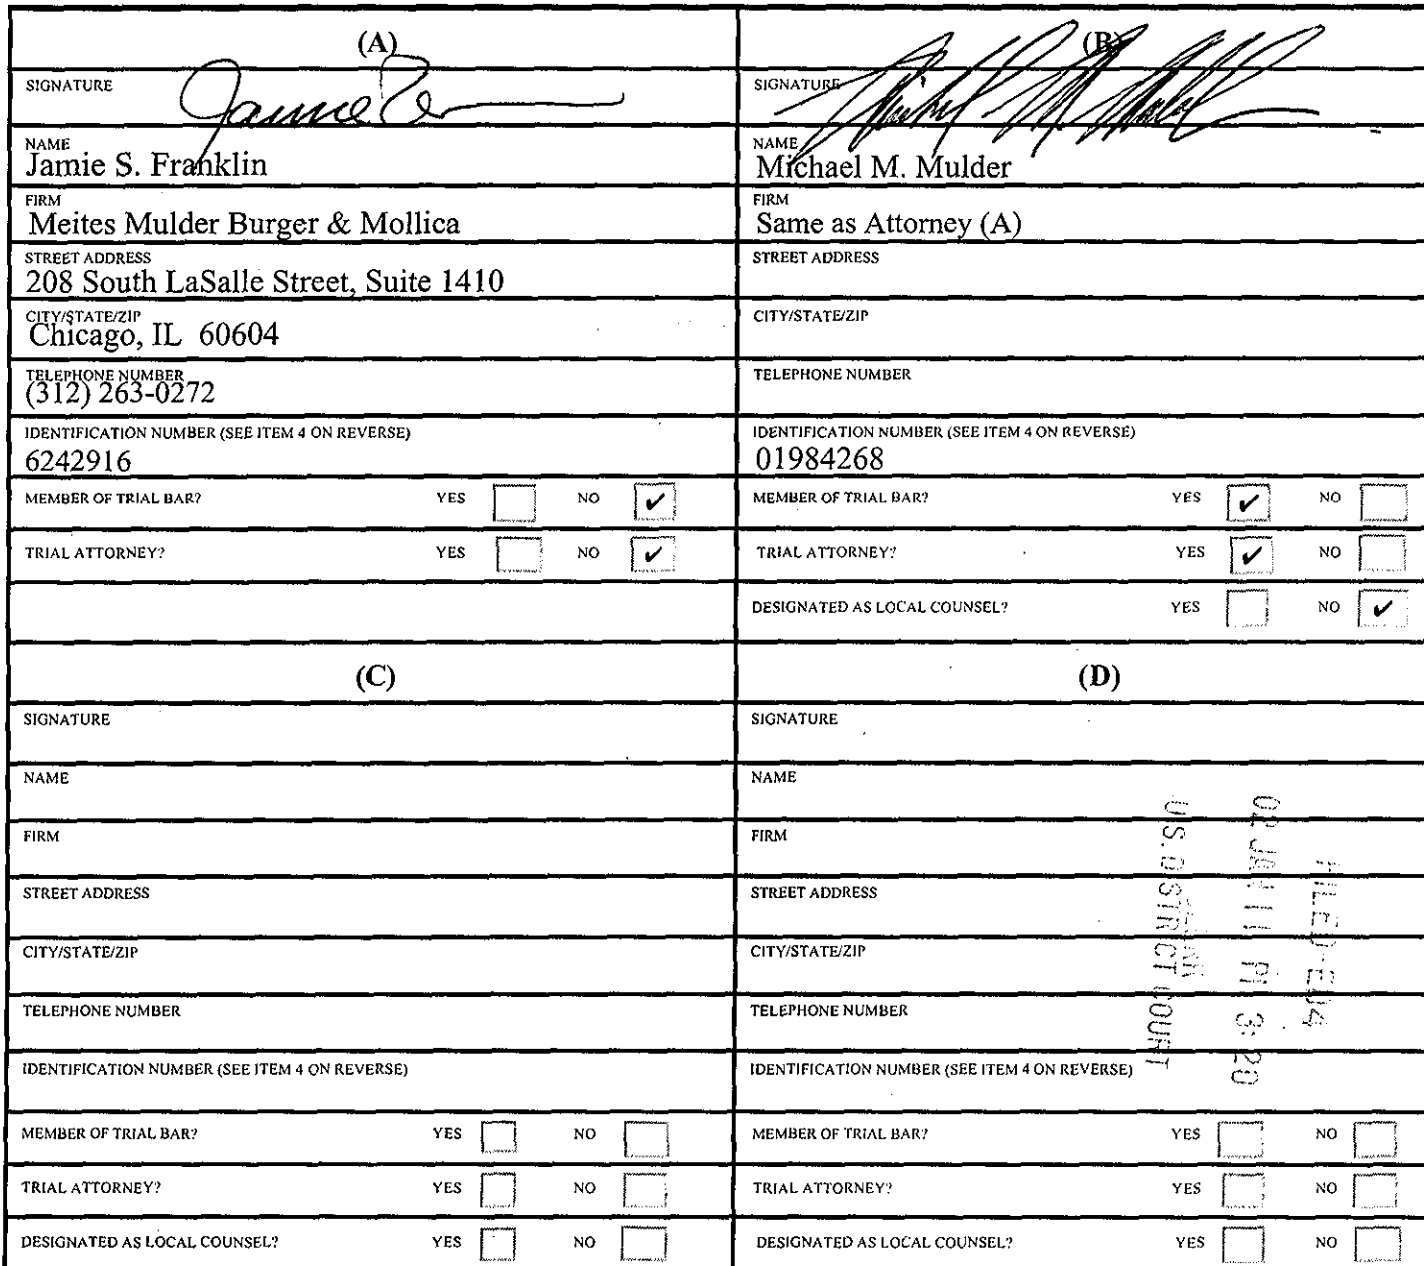 (A)
SIGNATURE
NAME
Jamie S. Franklin
FIRM
Meites Mulder Burger & Mollica
STREET ADDRESS
208 South LaSalle Street, Suite 1410
CITY/STATE/ZIP
Chicago, IL 60604
TELEPHONE NUMBER
(312) 263-0272
IDENTIFICATION NUMBER (SEE ITEM 4 ON REVERSE)
6242916
MEMBER OF TRIAL BAR? YES NO ✔
TRIAL ATTORNEY? YES NO ✔
(B)
SIGNATURE
Michael M. Mulder
NAME
Michael M. Mulder
FIRM
Same as Attorney (A)
STREET ADDRESS
CITY/STATE/ZIP
TELEPHONE NUMBER
IDENTIFICATION NUMBER (SEE ITEM 4 ON REVERSE)
01984268
MEMBER OF TRIAL BAR? YES ✔ NO
TRIAL ATTORNEY? YES ✔ NO
DESIGNATED AS LOCAL COUNSEL? YES NO ✔
(C)
SIGNATURE
NAME
FIRM
STREET ADDRESS
CITY/STATE/ZIP
TELEPHONE NUMBER
IDENTIFICATION NUMBER (SEE ITEM 4 ON REVERSE)
MEMBER OF TRIAL BAR? YES NO
TRIAL ATTORNEY? YES NO
DESIGNATED AS LOCAL COUNSEL? YES NO
(D)
SIGNATURE
NAME
FIRM
STREET ADDRESS
CITY/STATE/ZIP
TELEPHONE NUMBER
IDENTIFICATION NUMBER (SEE ITEM 4 ON REVERSE)
MEMBER OF TRIAL BAR? YES NO
TRIAL ATTORNEY? YES NO
DESIGNATED AS LOCAL COUNSEL? YES NO
FILED-ED4
02 JAN 11 PM 3:20
U.S. DISTRICT COURT